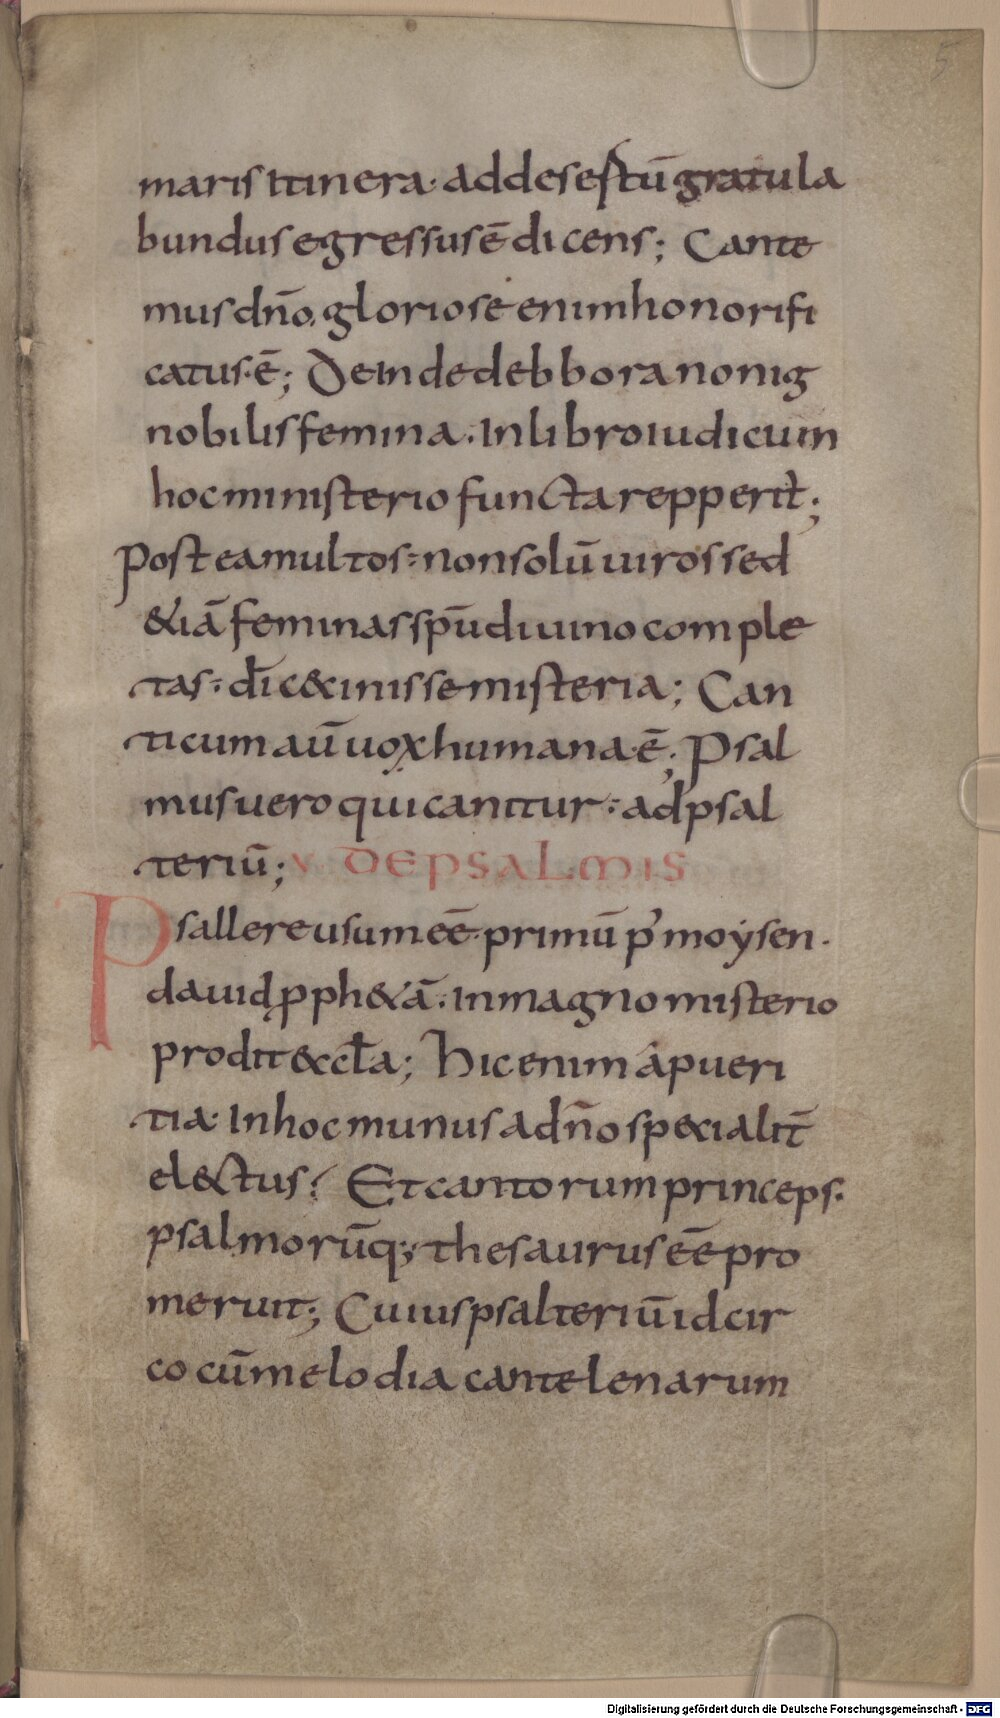 5
maris itinera· ad desestū gratula
bundus egressus ē dicens; Cante
mus dn̄o, gloriose enim honorifi
catus·ē; Deinde debbora non ig
nobilis femina· In libro iudicum
hoc ministerio functa repperit̄;
Postea multos· non solū uiros sed
&iā feminas sp̄u diuino comple
tas· dic̄ & inisse misteria; Can
ticum aū uox humana·ē; Psal
mus uero qui canitur· ad psal
teriū; V· DE PSALMIS
Psallere usum eē· primū p' moysen·
dauid pph&ā· in magno misterio
prodit &cc̄ta; Hic enim a pueri
tia· In hoc munus a dn̄o sp&cialit̄
el&ctus; Et cantorum princeps·
psalmorūq; thesaurus eē pro
meruit; Cuius psalteriū idcir
co cū melodia cantelenarum
Digitalisierung gefördert durch die Deutsche Forschungsgemeinschaft - DFG